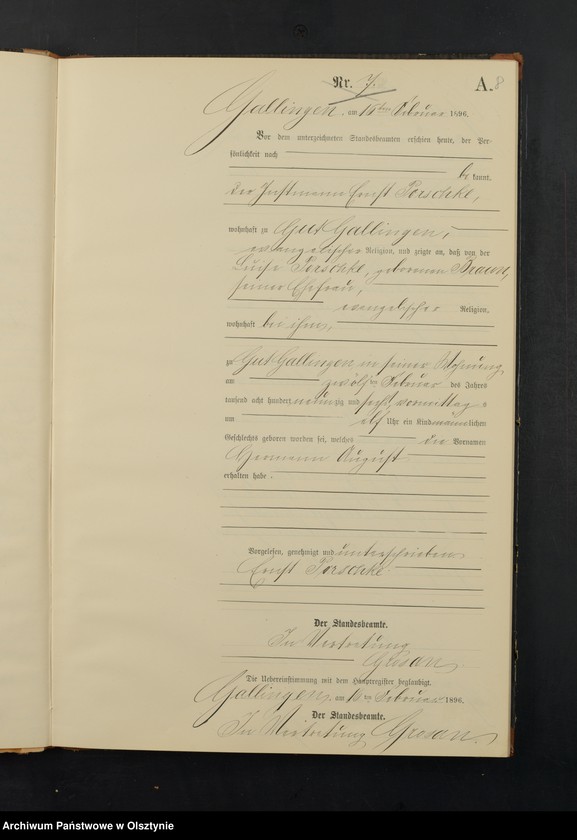 Nr. 7.
A.
8
Gallingen, am 15ten Februar 1896.
Vor dem unterzeichneten Standesbeamten erschien heute, der Per-
sönlichkeit nach
be kannt,
der Instmann Ernst Porschke,
wohnhaft zu Gut Gallingen,
evangelischer Religion, und zeigte an, daß von der
Luise Porschke, geborenen Braun,
seiner Ehefrau,
evangelischer Religion,
wohnhaft bei ihm,
zu Gut Gallingen in seiner Wohnung
am zwölften Februar des Jahres
tausend acht hundert neunzig und sechs, vormittag s
um elf Uhr ein Kind männlichen
Geschlechts geboren worden sei, welches die Vornamen
Hermann August
erhalten habe.
Vorgelesen, genehmigt und unterschrieben
Ernst Porschke
Der Standesbeamte.
In Vertretung
Die Uebereinstimmung mit dem Hauptregister beglaubigt.
Gallingen, am Februar 1896.
Der Standesbeamte.
In Vertretung
Archiwum Państwowe w Olsztynie